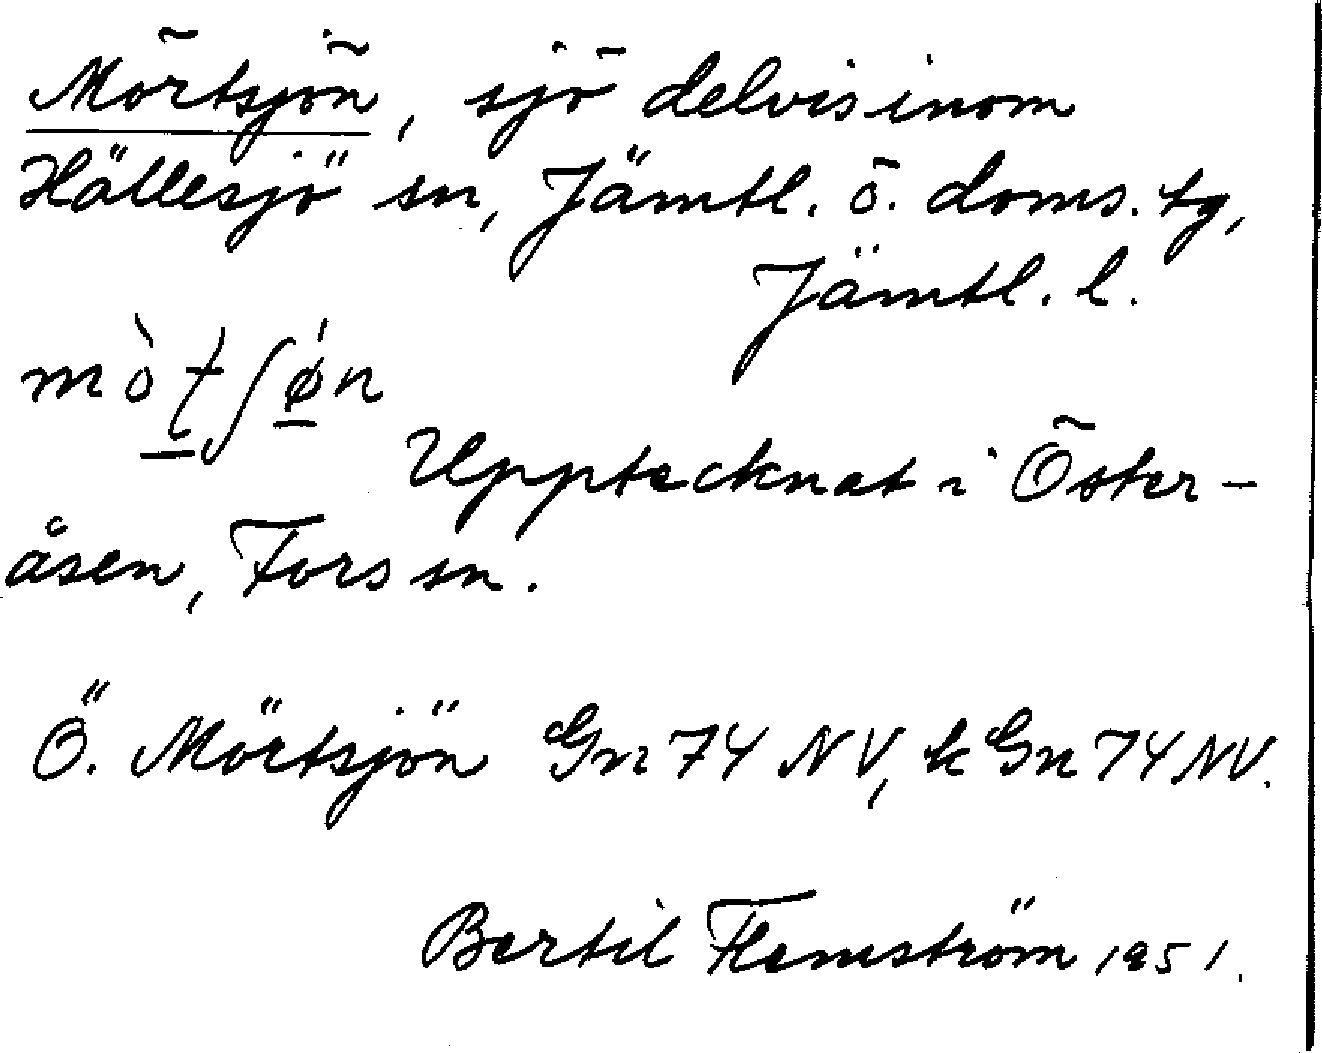 Mörtsjön, sjö delvis inom
Hällesjö sn, Jämtl. ö. doms. tg,
Jämtl. l.
mòṱʃǿn
Upptecknat i Öster-
åsen, Fors sn.
Ö. Mörtsjön Gn 74 NV, k Gn 74 NV.
Bertil Flemström 1951.